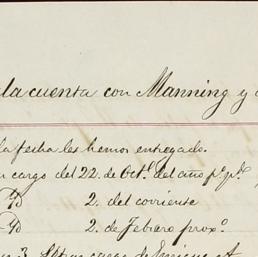 la cuenta con Manning y
la fecha les hemos entregado.
cargo del 22. de Octe. del año pº. pdo.
2. del corriente
2. de Febrero proxº.